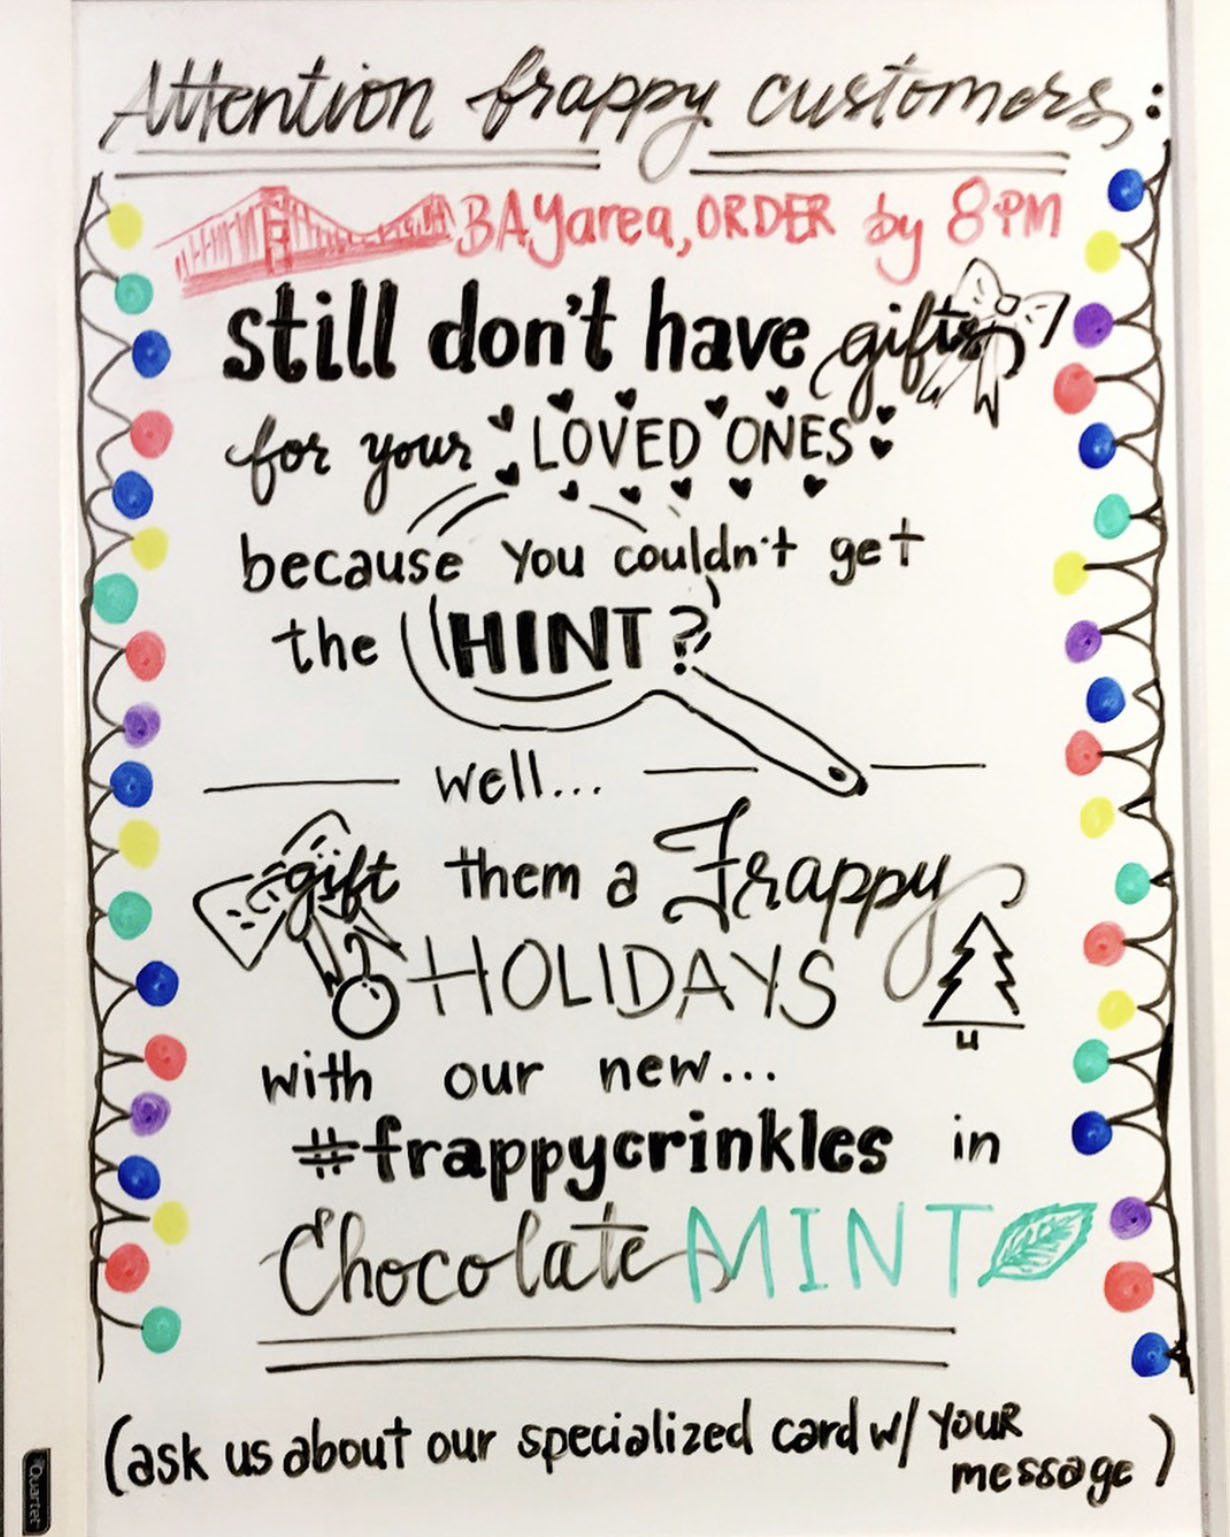 Attention frappy customers:
BAYarea, ORDER by 8PM
still don't have gifts
for your LOVED ONES
because you couldn't get
the HINT?
well...
gift them a Frappy
HOLIDAYS
with our new...
#frappycrinkles in
Chocolate MINT
(ask us about our specialized card w/ YOUR
message)
Quartet